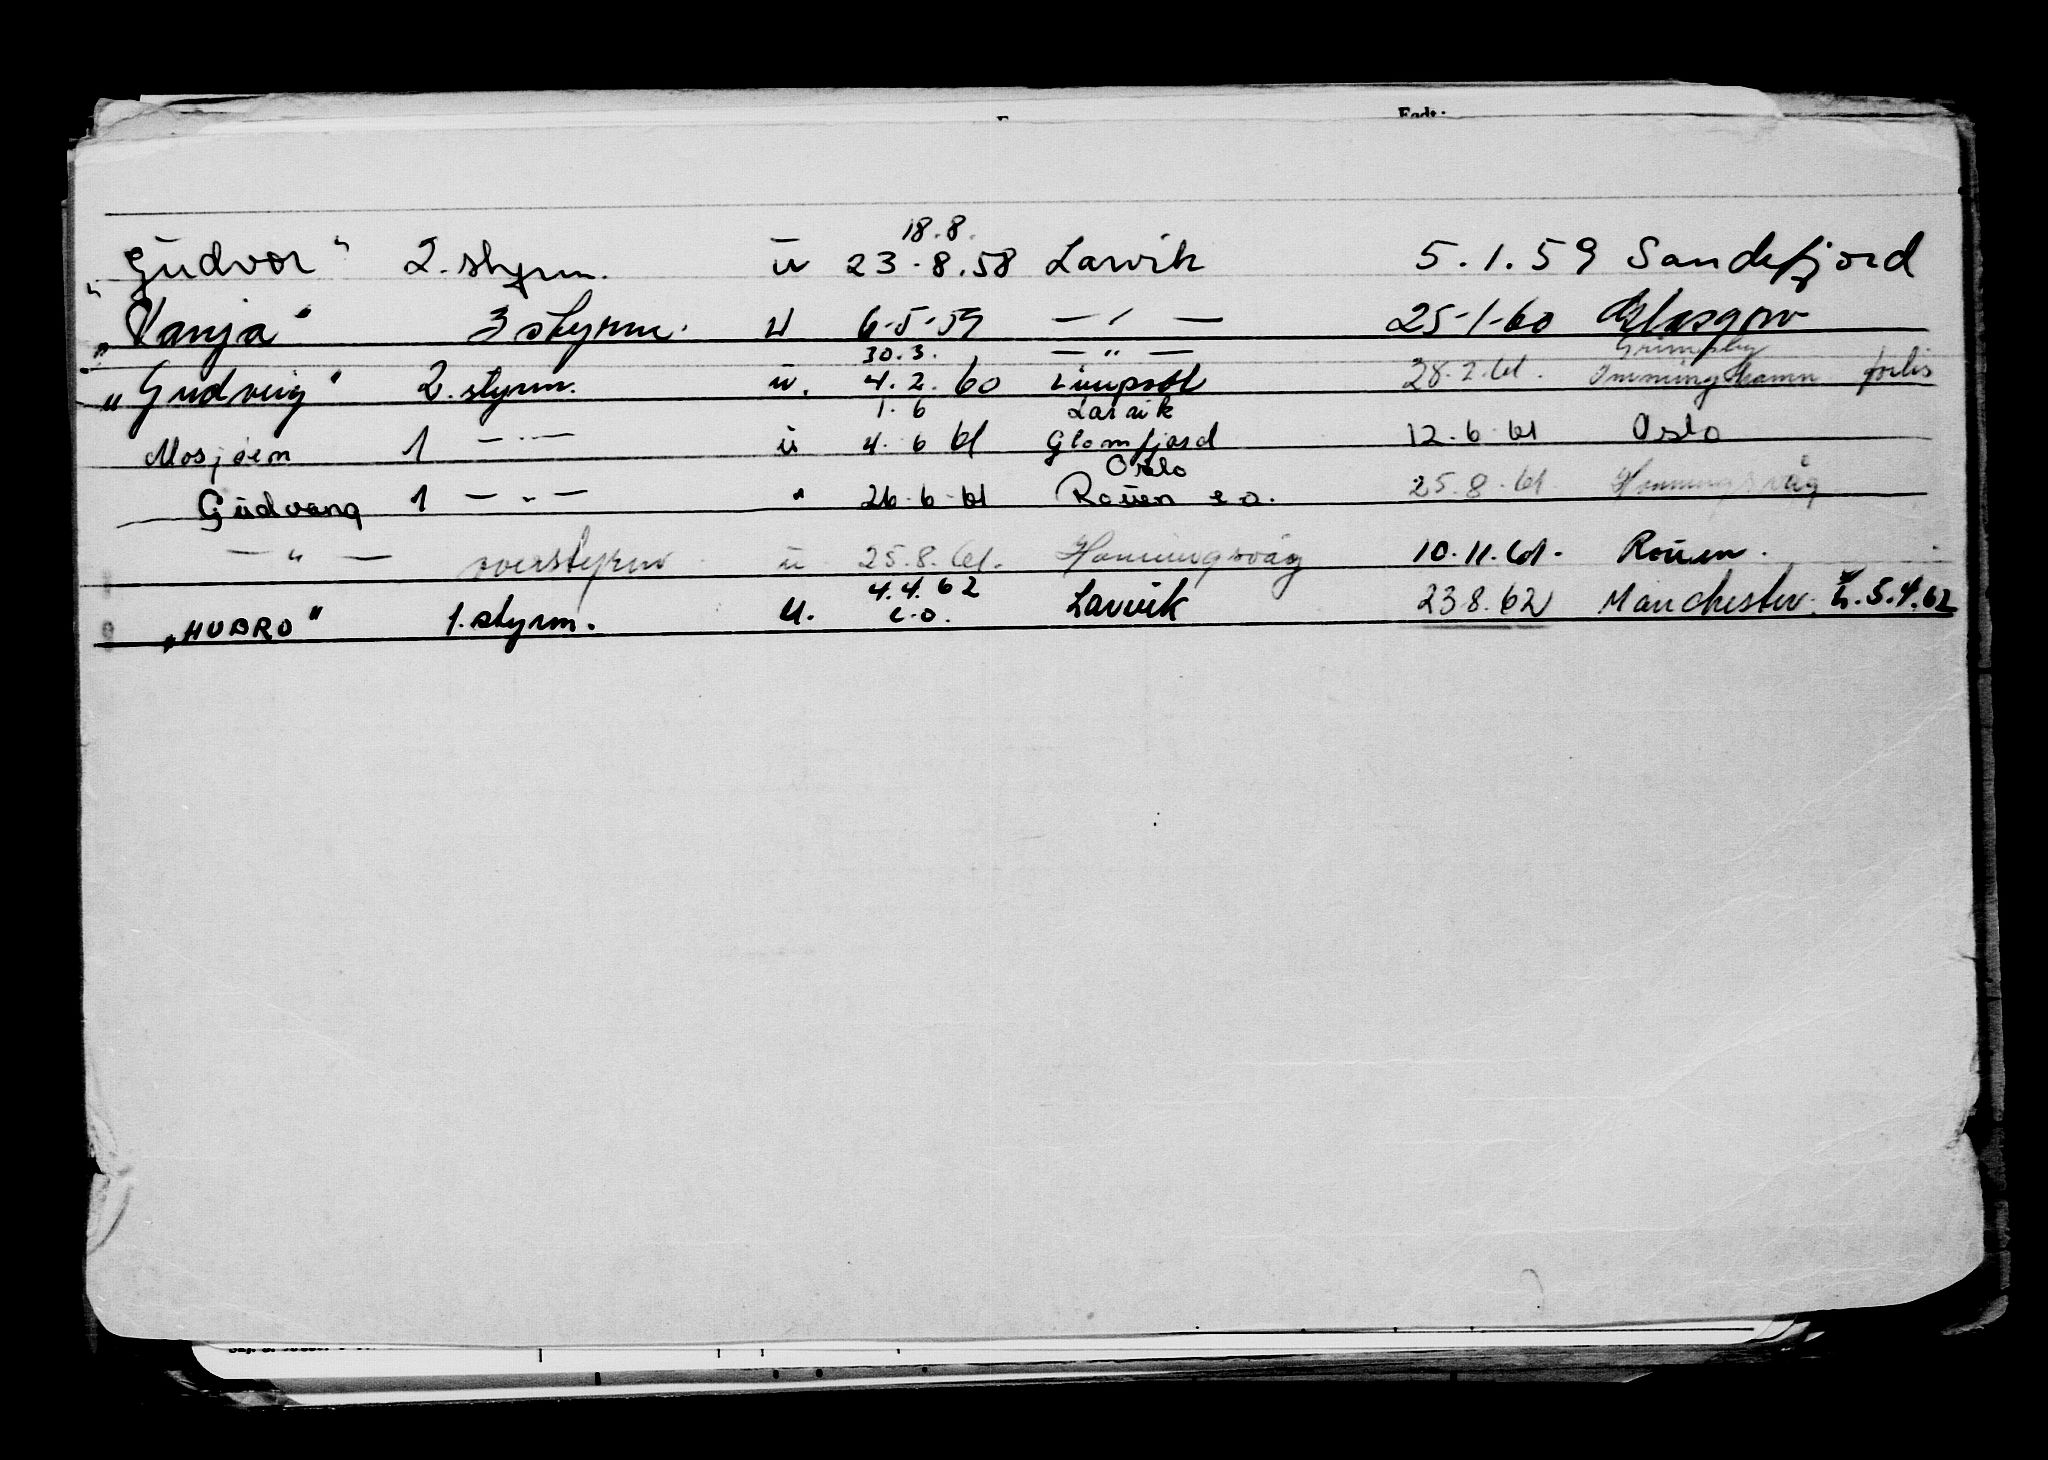 Født:
18.8.
"Gudvor" 2. styrm. u 23.8.58 Larvik 5.1.59 Sandefjord
"Vanja" 3 styrm. u 6-5-59 — " — 25-1-60 Glasgow
30.3. — " — Grimsby
"Gudveig" 2. styrm. u. 4.2.60 Liverpool 28.2.61. Immingham forlis
1.6 Larvik
Mosjøen 1 — " — u 4.6.61 Glomfjord 12.6.61 Oslo
Oslo
Gudvang 1 — " — " 26.6.61 Rouen e.o. 25.8.61. Honningsvåg
— " — overstyrm. u 25.8.61. Honningsvåg 10.11.61. Rouen.
4.4.62
"HUBRO" 1. styrm. u. e.o. Larvik 23.8.62 Manchester. 5.4.62